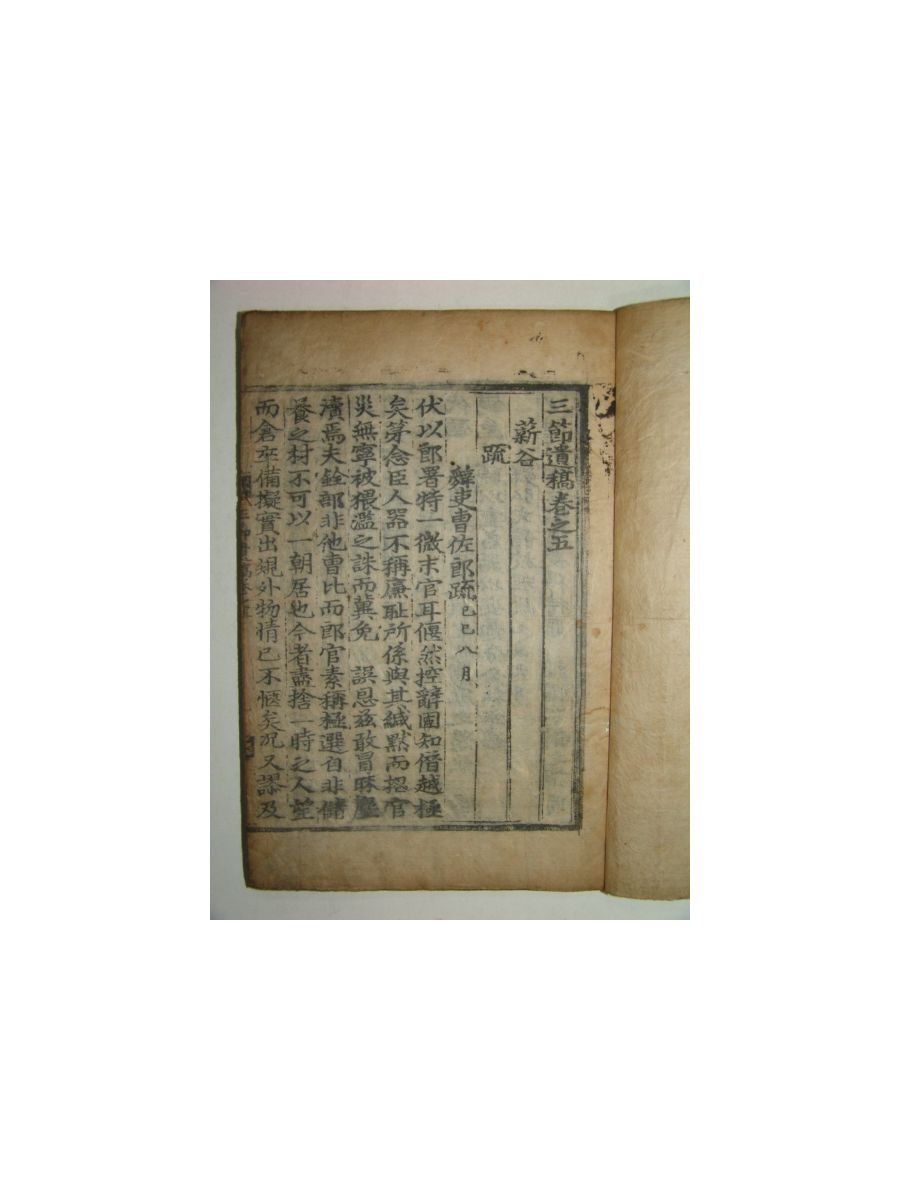 三節遺稿卷之五
薪谷
疏
辭吏曹佐郎疏 己巳八月
伏以郎署特一微末官耳偃然控辭固知僭越極
矣第念臣人器不稱廉耻所係與其緘默而招官
災無寧被猥濫之誅而冀免 誤恩玆敢冒昧塵
瀆焉夫銓部非他曹比而郎官素稱極選自非儲
養之材不可以一朝居也今者盡捨一時之人望
而倉卒備擬實出規外物情已不愜矣況又謬及